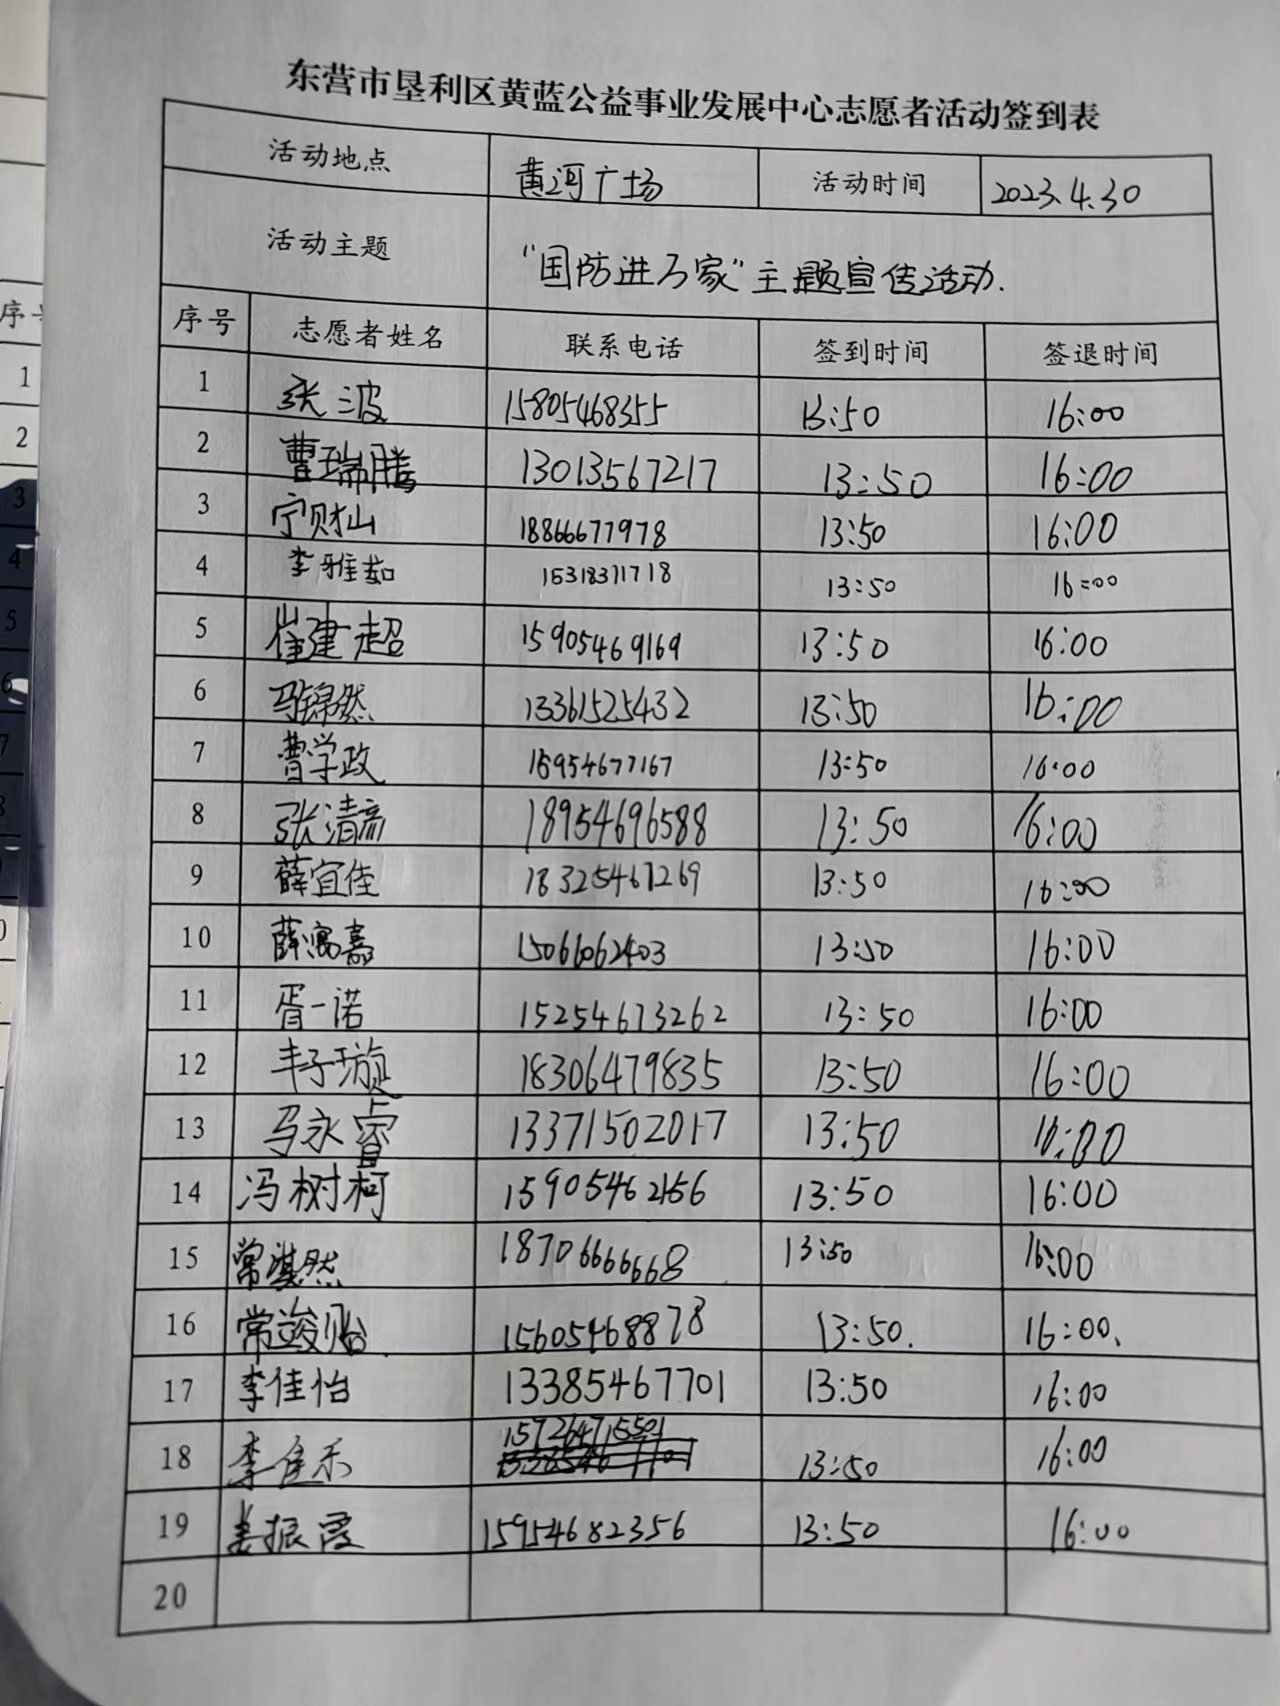 东营市垦利区黄蓝公益事业发展中心志愿者活动签到表
活动地点 黄河广场 活动时间 2023.4.30
活动主题 “国防进万家”主题宣传活动.
序号 志愿者姓名 联系电话 签到时间 签退时间
1 张波 15805468355 13:50 16:00
2 曹瑞腾 13013567217 13:50 16:00
3 宁财山 18866677978 13:50 16:00
4 李雅茹 15318371718 13:50 16:00
5 崔建超 15905469169 13:50 16:00
6 马锦然 13361525432 13:50 16:00
7 曹学政 15954677167 13:50 16:00
8 张清彦 18954696588 13:50 16:00
9 薛宜佳 18325467269 13:50 16:00
10 薛寓嘉 15066062403 13:50 16:00
11 胥一诺 15254673262 13:50 16:00
12 丰子璇 18306479835 13:50 16:00
13 马永睿 13371502017 13:50 16:00
14 冯树柯 15905462156 13:50 16:00
15 常淇然 18706666668 13:50 16:00
16 常竣贻 15605468878 13:50. 16:00.
17 李佳怡 13385467701 13:50 16:00
18 李佳禾 15726471550 13:50 16:00
19 姜振霞 15954682356 13:50 16:00
20
序号
1
2
3
4
5
6
7